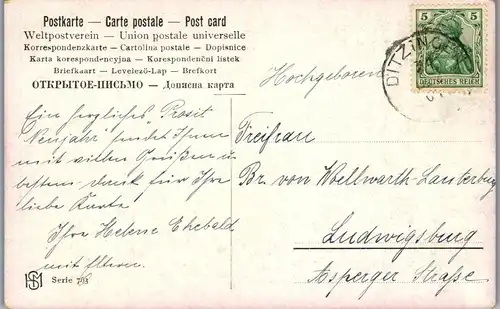 Postkarte — Carte postale — Post card
Weltpostverein — Union postale universelle
Korrespondenzkarte — Cartolina postale — Dopisnice
Karta korespondencyjna — Korespondenční listek
Briefkaart — Levelező-Lap — Brefkort
ОТКРЫТОЕ-ПИСЬМО — Дописна карта
5 5
DEUTSCHES REICH
DITZINGEN
Hochgeboren
Freifrau
Br. von Woellwarth-Lauterburg
Ludwigsburg
Asperger Straße
Ein herzliches "Prosit
Neujahr" sendet Ihnen
mit vielen Grüßen u.
besten dank für Ihre
liebe Karte
Ihre Helene Ehebald
mit Eltern.
HSM Serie 703